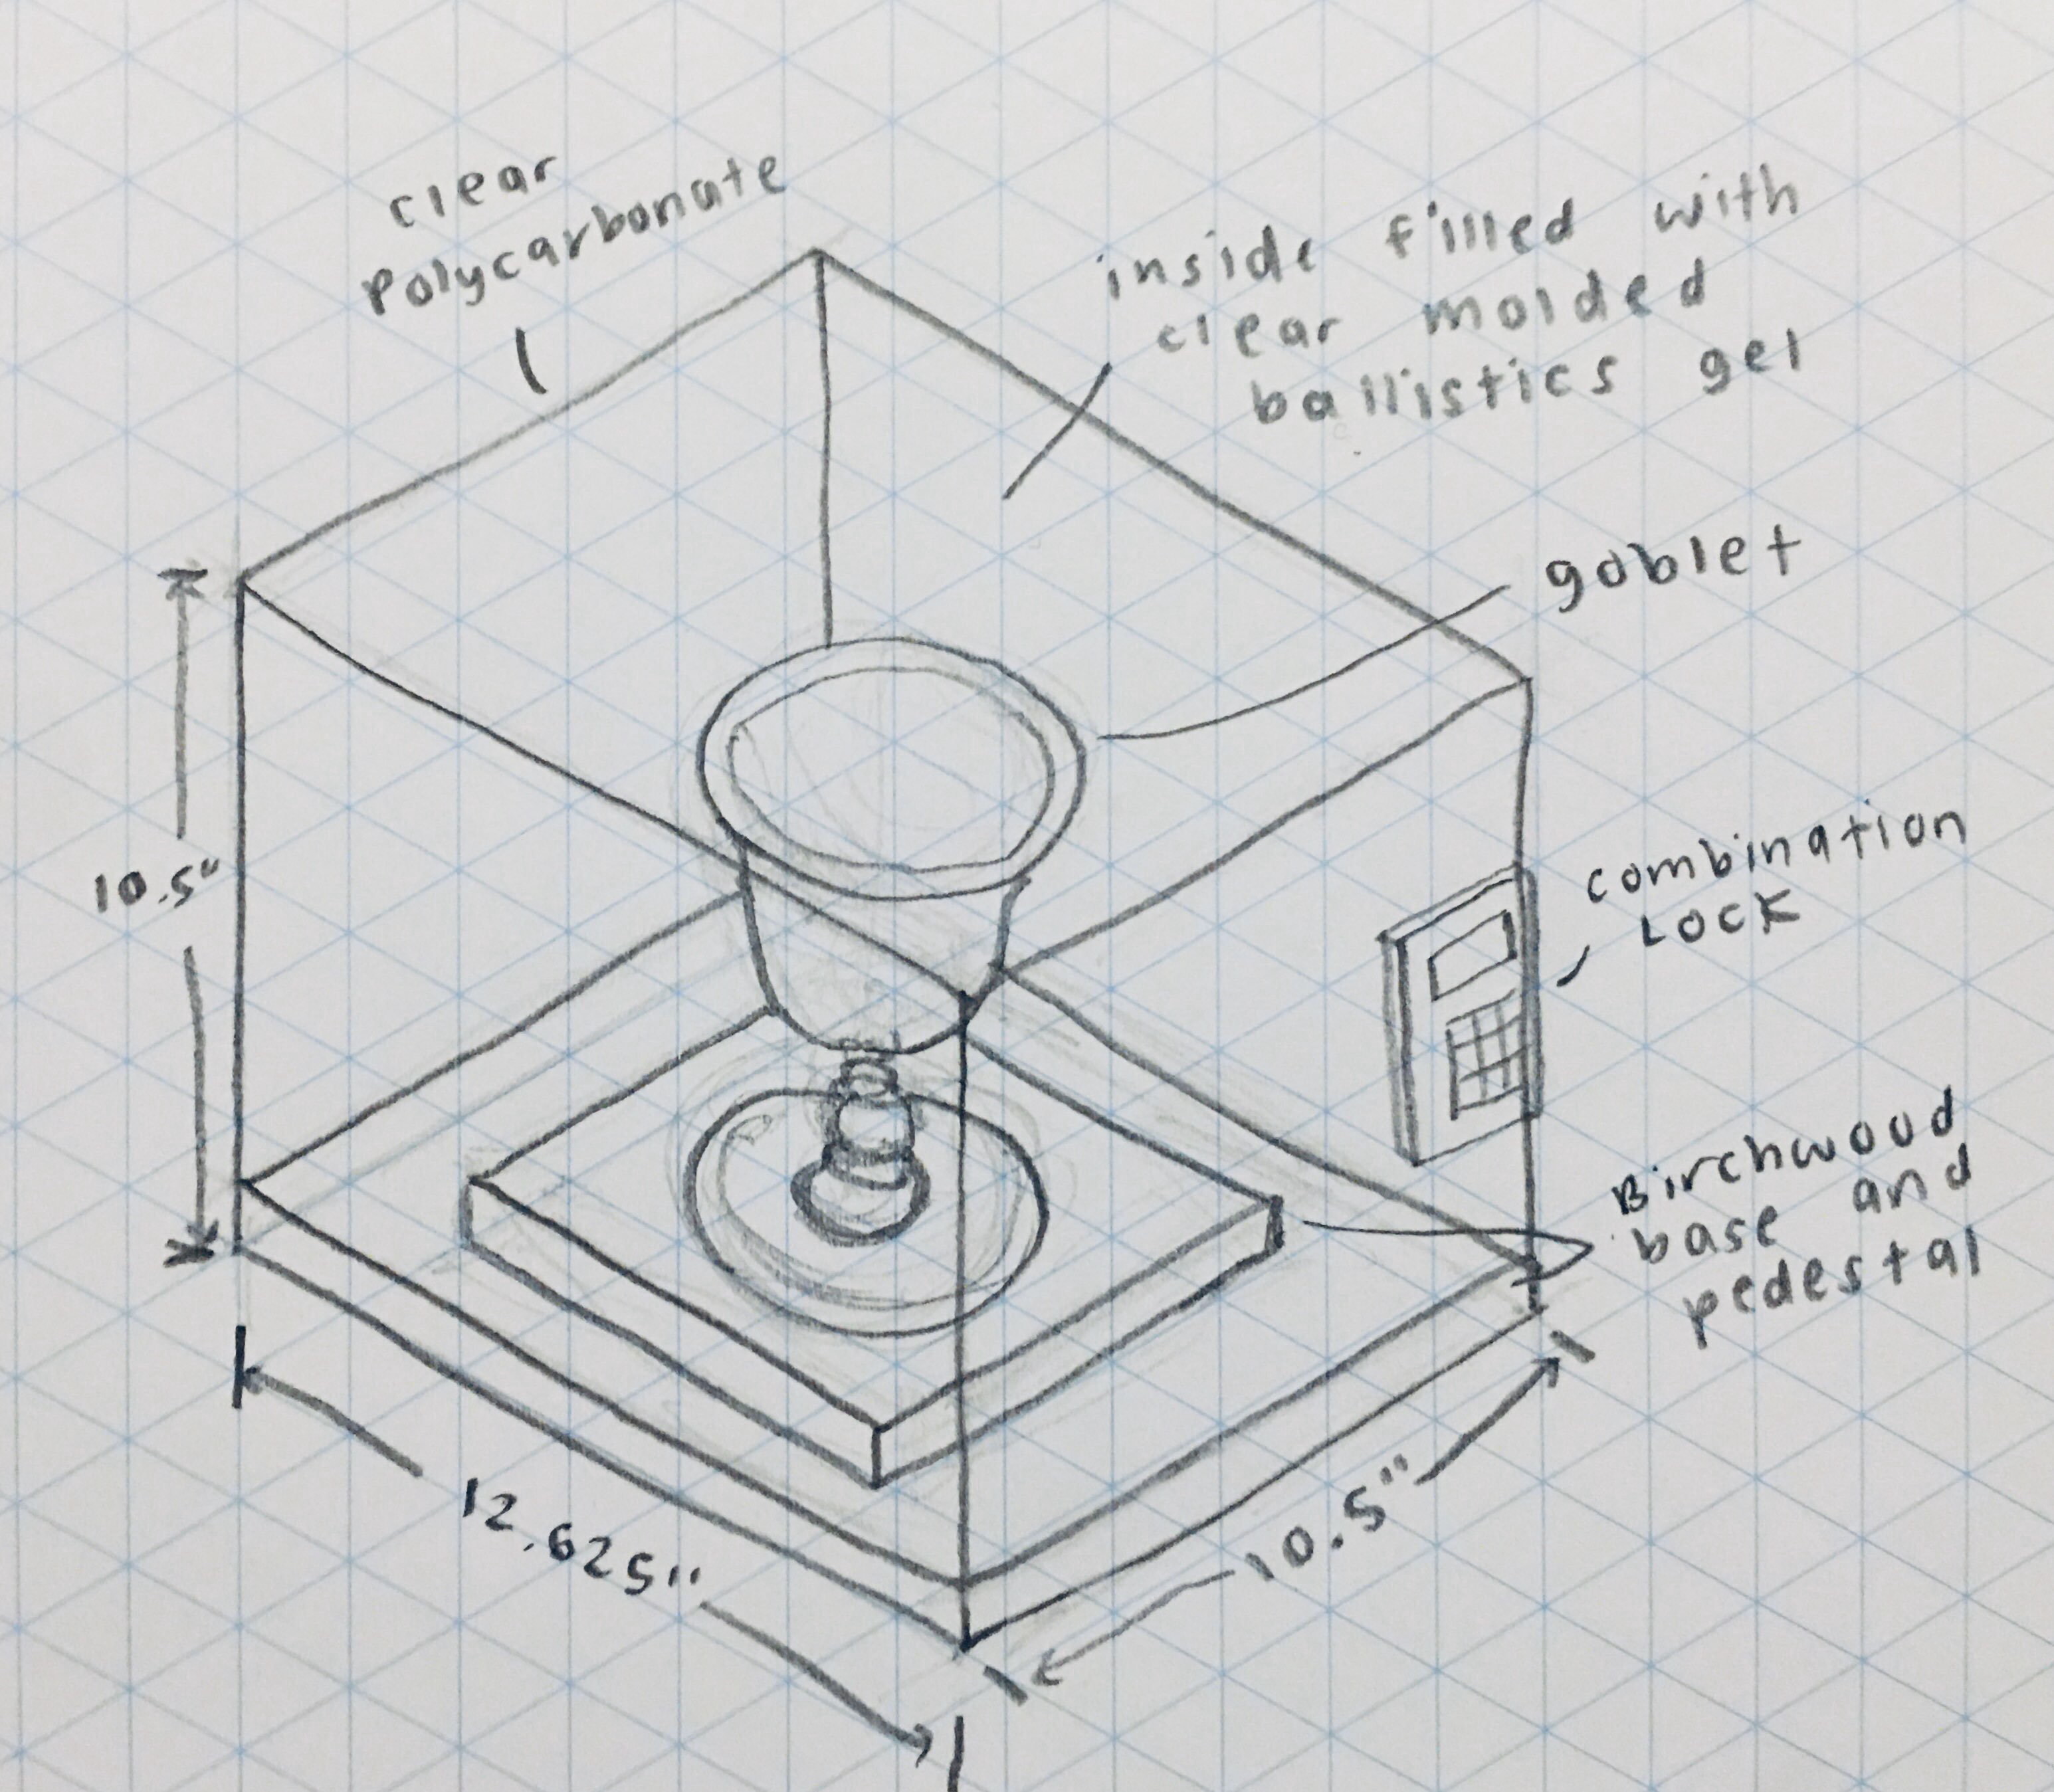 clear
polycarbonate
inside filled with
clear molded
ballistics gel
goblet
combination
LOCK
10.5"
Birchwood
base and
pedestal
12.625"
10.5"